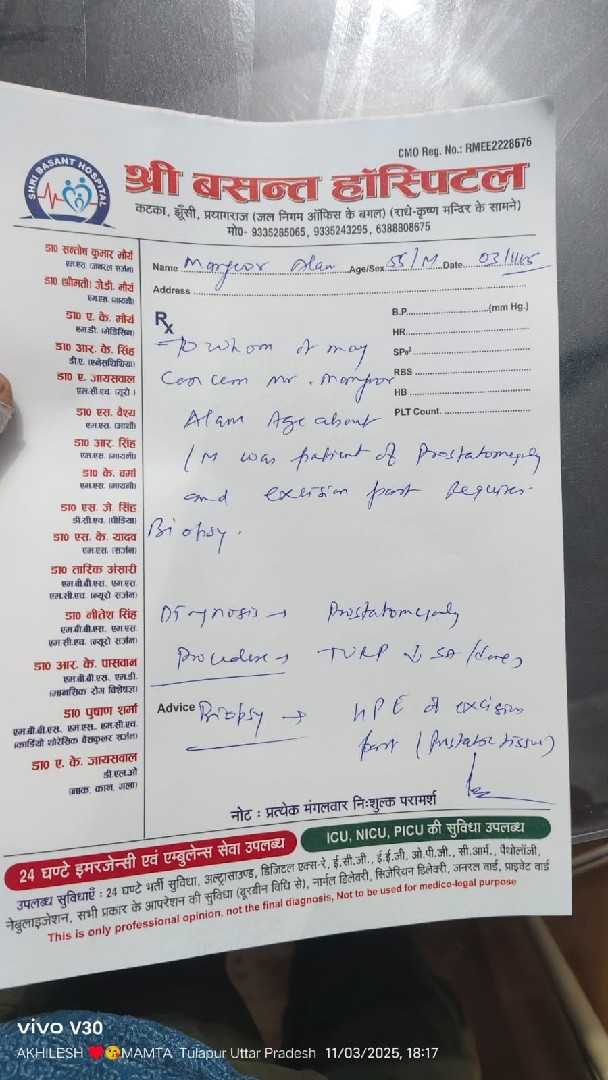 CMO Reg. No.: RMEE2228676
SHRI BASANT HOSPITAL
श्री बसन्त हॉस्पिटल
कटका, झूँसी, प्रयागराज (जल निगम ऑफिस के बगल) (राधे-कृष्ण मन्दिर के सामने)
मो0- 9335285065, 9335243295, 6388808675
Name Manjoor Alam Age/Sex 55/M Date 03/11/25
Address
B.P. (mm Hg.)
HR
SPo²
RBS
HB
PLT Count.
डा0 सन्तोष कुमार मौर्य
एम.एस. (जनरल सर्जन)
डा0 (श्रीमती) जे.डी. मौर्य
एम.एस. (गायनी)
डा0 ए. के. मौर्य
एम.डी. (मेडिसिन)
डा0 आर. के. सिंह
डी.ए. (एनेसथिसिया)
डा0 ए. जायसवाल
एम.सी.एच. (यूरो)
डा0 एस. वैश्य
एम.एस. (आर्थो)
डा0 आर. सिंह
एम.एस. (गायनी)
डा0 के. वर्मा
एम.एस. (गायनी)
डा0 एस. जे. सिंह
डी.सी.एच. (पीडिया)
डा0 एस. के. यादव
एम.एस. (सर्जन)
डा0 तारिक अंसारी
एम.बी.बी.एस. एम.एस.
एम.सी.एच. (न्यूरो सर्जन)
डा0 नीतेश सिंह
एम.बी.बी.एस. एम.एस.
एम.सी.एच. (न्यूरो सर्जन)
डा0 आर. के. पासवान
एम.बी.बी.एस. एम.डी.
(मानसिक रोग विशेषज्ञ)
डा0 पुषाण शर्मा
एम.बी.बी.एस. एम.एस. एम.सी.एच.
(कार्डियो थोरेसिक वैसकुलर सर्जन)
डा0 ए. के. जायसवाल
डी.एल.ओ
(नाक, कान, गला)
Rx
To whom it may
Concern Mr. Manjoor
Alam Age about
/M was patient of Prostatomegaly
and excision part Requires
Biopsy.
Diagnosis → Prostatomegaly
Procedure → TURP ↓ SA
Advice Biopsy → HPE of excision
part (Prostator tissue)
नोट : प्रत्येक मंगलवार निःशुल्क परामर्श
24 घण्टे इमरजेन्सी एवं एम्बुलेन्स सेवा उपलब्ध
ICU, NICU, PICU की सुविधा उपलब्ध
उपलब्ध सुविधाएँ : 24 घण्टे भर्ती सुविधा, अल्ट्रासाउण्ड, डिजिटल एक्स-रे, ई.सी.जी., ई.ई.जी, ओ.पी.जी., सी.आर्म., पैथोलॉजी,
नेबुलाइजेशन, सभी प्रकार के आपरेशन की सुविधा (दूरबीन विधि से), नार्मल डिलेवरी, सिजेरियन डिलेक्री, जनरल वार्ड, प्राइवेट वार्ड
This is only professional opinion, not the final diagnosis, Not to be used for medico-legal purpose
vivo V30
AKHILESH ❤️😘MAMTA Tulapur Uttar Pradesh 11/03/2025, 18:17